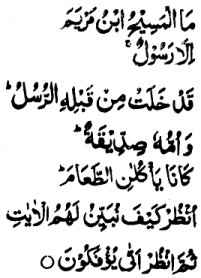 مَا الْمَسِيْحُ ابْنُ مَرْيَمَ
اِلَّا رَسُوْلٌ ۚ
قَدْ خَلَتْ مِنْ قَبْلِهِ الرُّسُلُ ؕ
وَاُمُّهٗ صِدِّيْقَةٌ ؕ
كَانَا يَاْكُلٰنِ الطَّعَامَ ؕ
اُنْظُرْ كَيْفَ نُبَيِّنُ لَهُمُ الْاٰيٰتِ
ثُمَّ انْظُرْ اَنّٰى يُؤْفَكُوْنَ ○